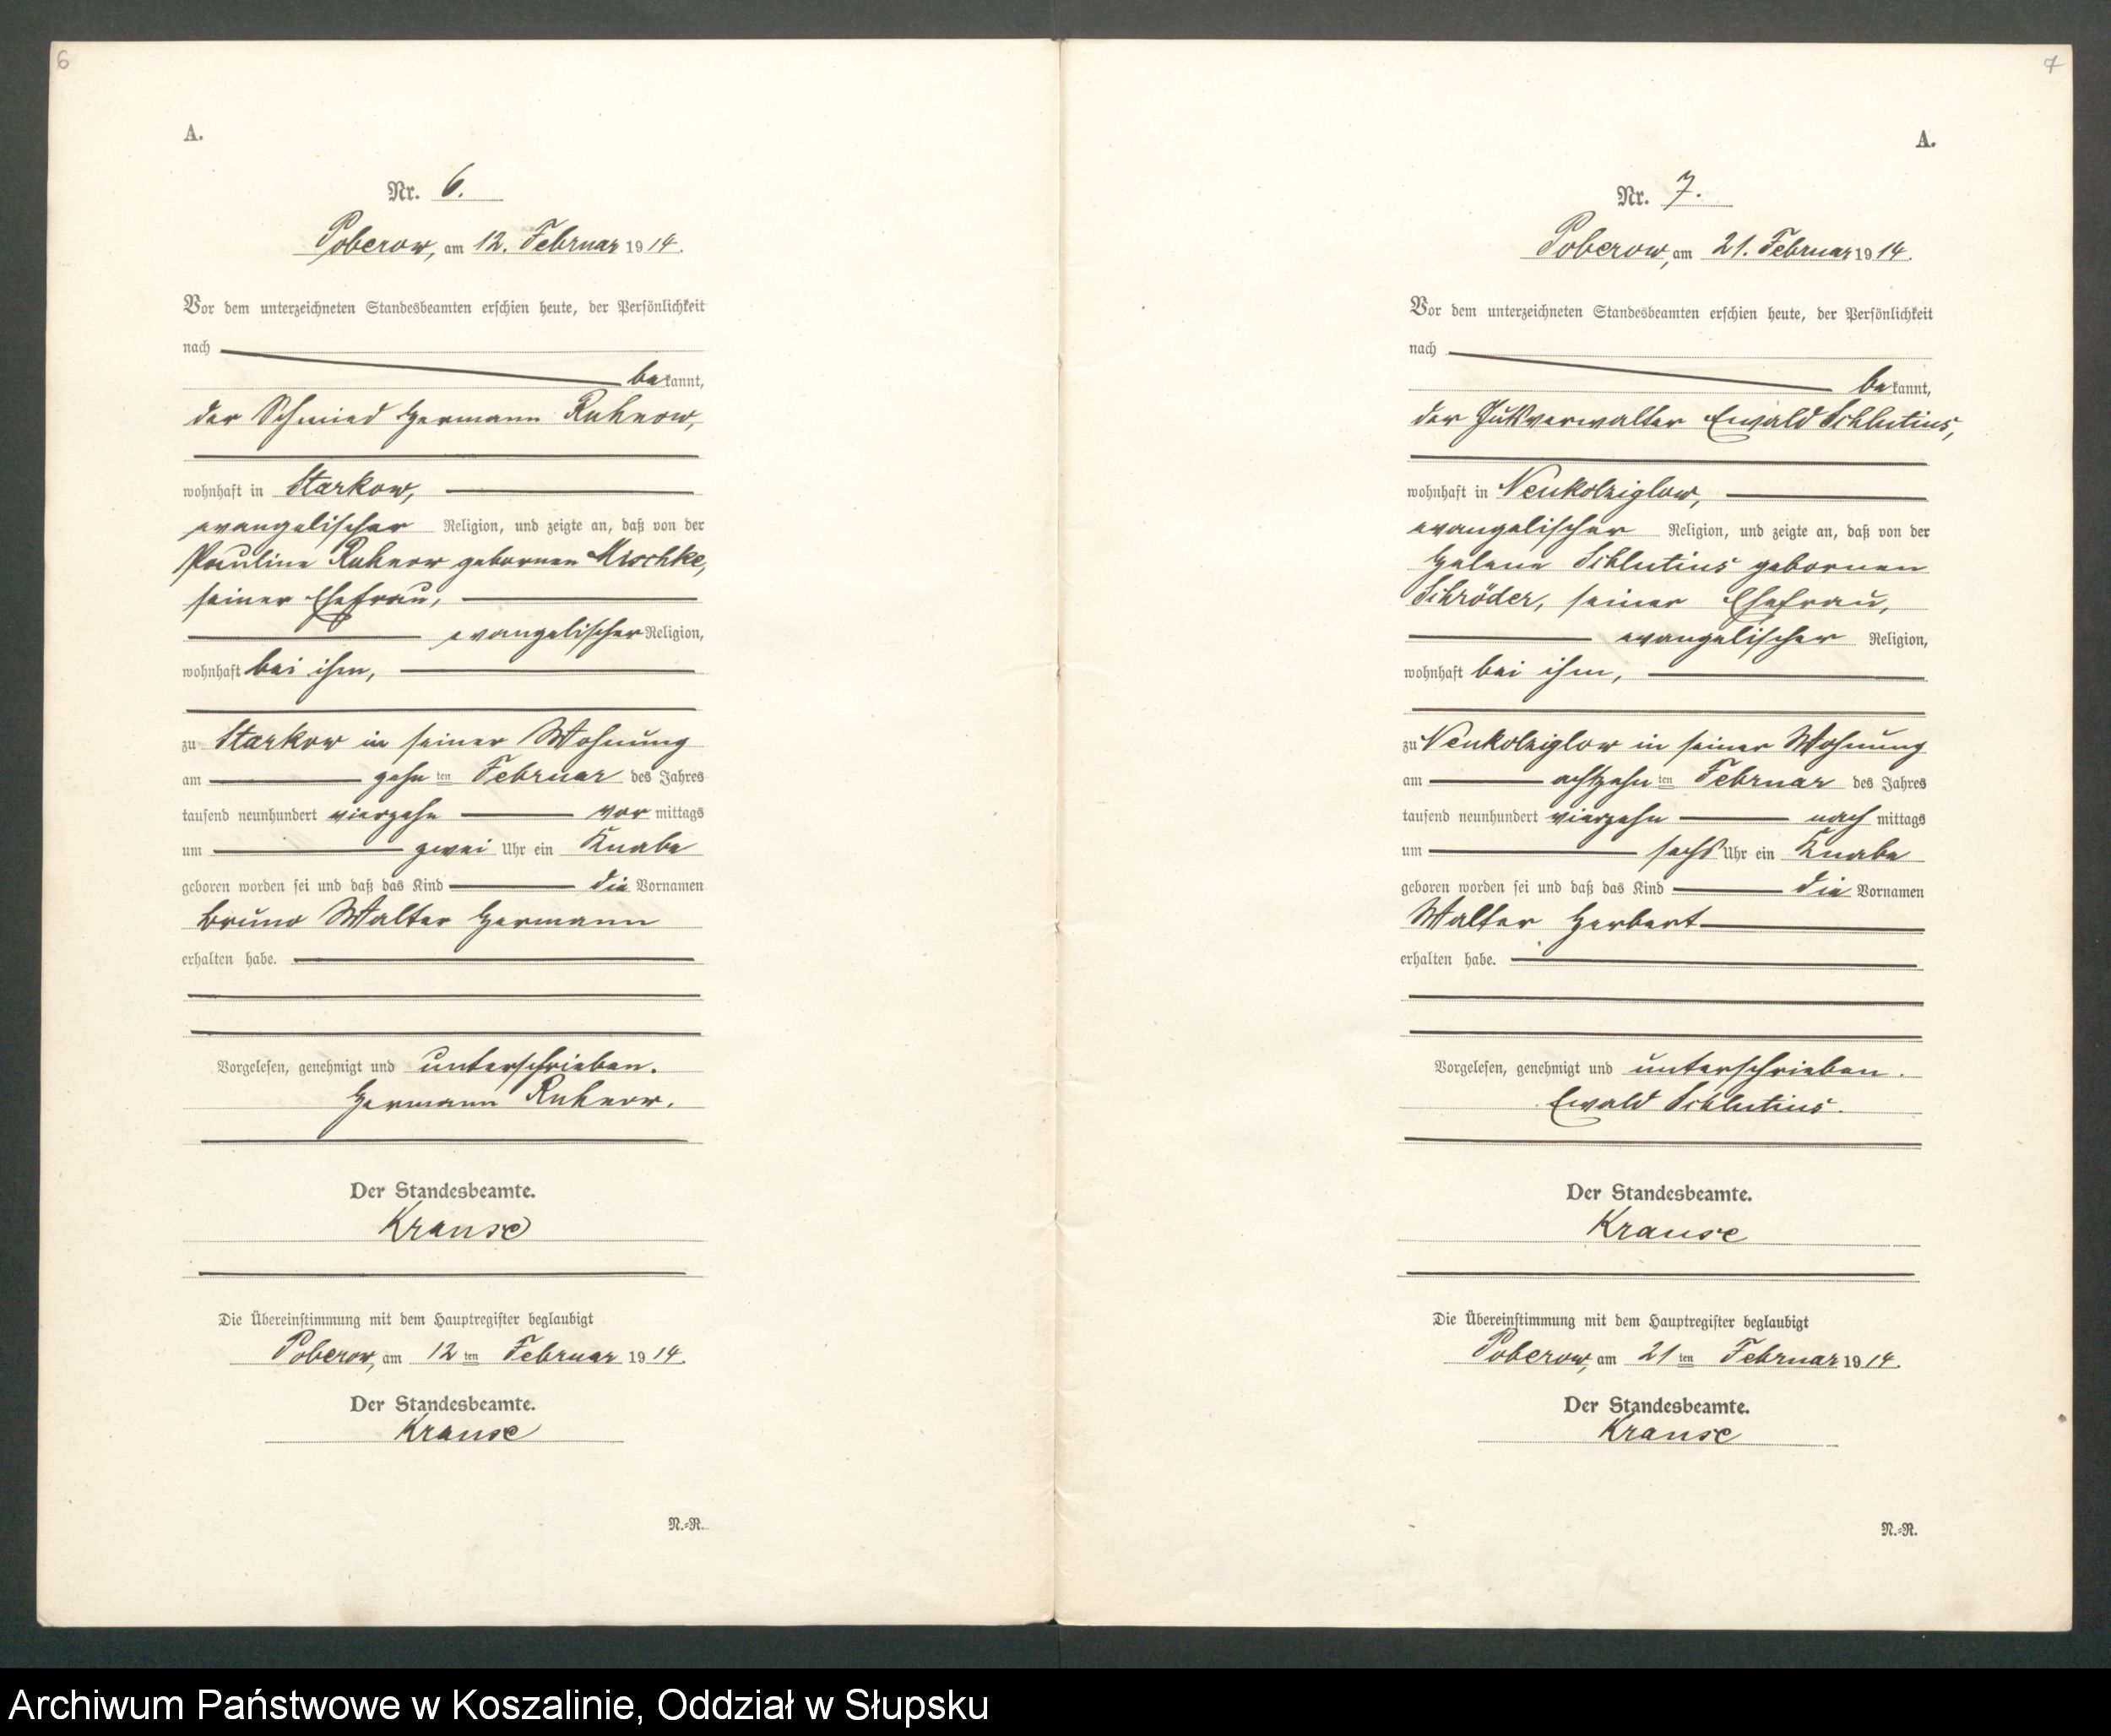 6
A.
Nr. 6.
Poberow, am 12. Februar 1914.
Vor dem unterzeichneten Standesbeamten erschien heute, der Persönlichkeit
nach
bekannt,
der Schmied Hermann Ruhnow,
wohnhaft in Starkow,
evangelischer Religion, und zeigte an, daß von der
Pauline Ruhnow gebornen Mischke,
seiner Ehefrau,
evangelischer Religion,
wohnhaft bei ihm,
zu Starkow in seiner Wohnung
am zehn ten Februar des Jahres
tausend neunhundert vierzehn vor mittags
um zwei Uhr ein Knabe
geboren worden sei und daß das Kind die Vornamen
Bruno Walter Hermann
erhalten habe.
Vorgelesen, genehmigt und unterschrieben.
Hermann Ruhnow.
Der Standesbeamte.
Krause
Die Übereinstimmung mit dem Hauptregister beglaubigt
Poberow, am 12 ten Februar 1914.
Der Standesbeamte.
Krause
N.=R.
7
A.
Nr. 7.
Poberow, am 21. Februar 1914.
Vor dem unterzeichneten Standesbeamten erschien heute, der Persönlichkeit
nach
bekannt,
der Gutsverwalter Ewald Schlutius,
wohnhaft in Neukolziglow,
evangelischer Religion, und zeigte an, daß von der
Helene Schlutius gebornen
Schröder, seiner Ehefrau,
evangelischer Religion,
wohnhaft bei ihm,
zu Neukolziglow in seiner Wohnung
am achtzehn ten Februar des Jahres
tausend neunhundert vierzehn nach mittags
um sechs Uhr ein Knabe
geboren worden sei und daß das Kind die Vornamen
Walter Herbert
erhalten habe.
Vorgelesen, genehmigt und unterschrieben.
Ewald Schlutius.
Der Standesbeamte.
Krause
Die Übereinstimmung mit dem Hauptregister beglaubigt
Poberow, am 21 ten Februar 1914.
Der Standesbeamte.
Krause
N.=R.
Archiwum Państwowe w Koszalinie, Oddział w Słupsku